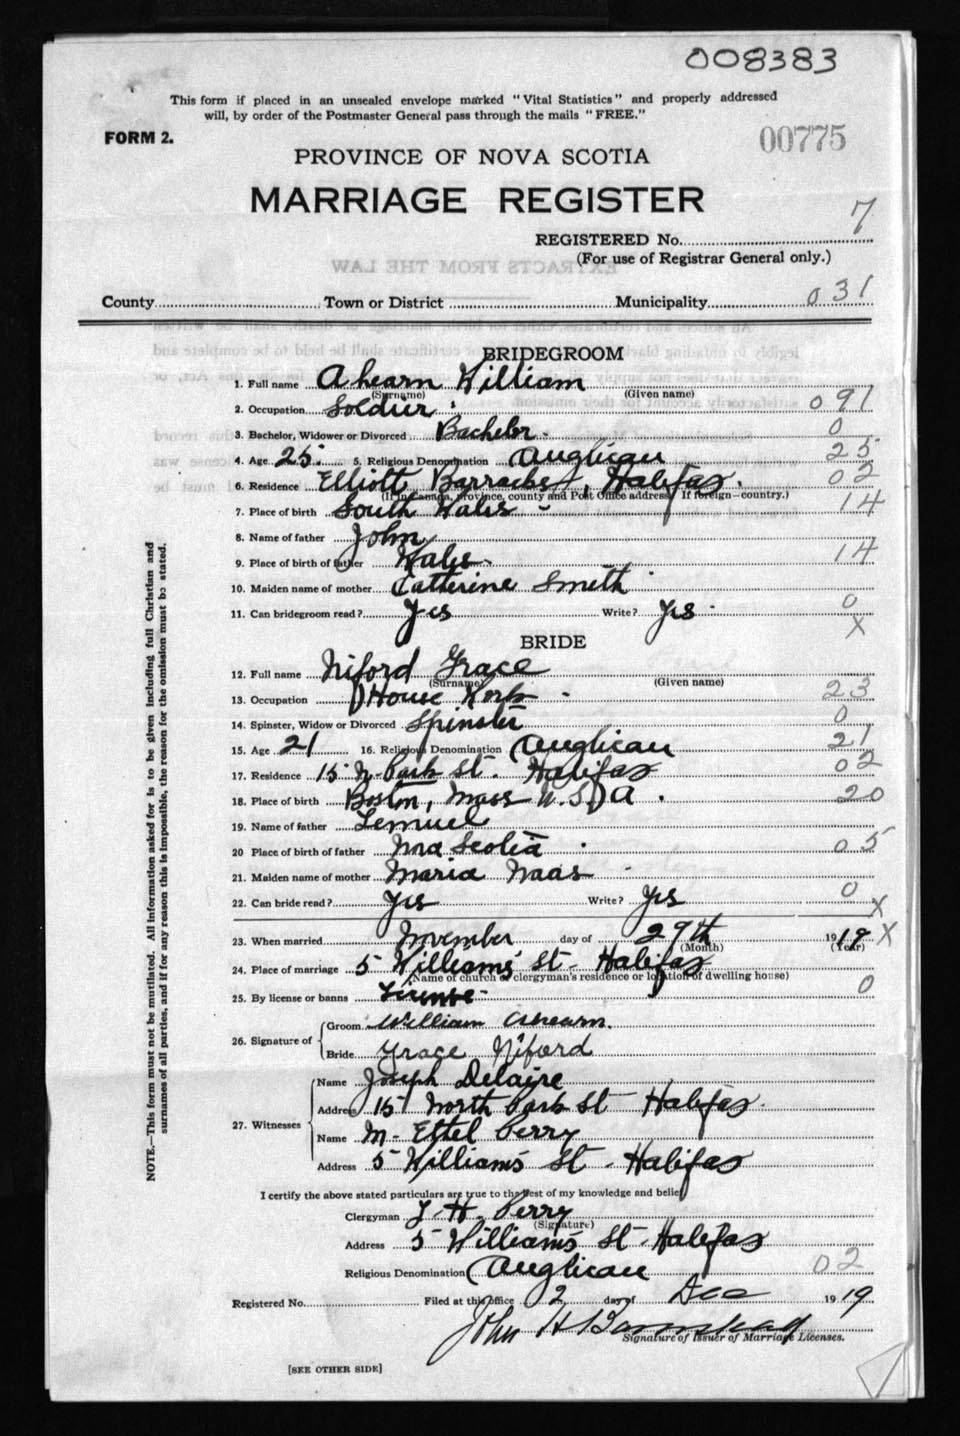 008383
This form if placed in an unsealed envelope marked "Vital Statistics" and properly addressed
will, by order of the Postmaster General pass through the mails "FREE."
FORM 2.
00775
PROVINCE OF NOVA SCOTIA
MARRIAGE REGISTER
REGISTERED No. 7
(For use of Registrar General only.)
EXTRACTS FROM THE LAW
County Town or District Municipality 031
BRIDEGROOM
1. Full name Ahearn William
(Surname) (Given name)
2. Occupation Soldier 091
3. Bachelor, Widower or Divorced Bachelor 0
4. Age 25. 5. Religious Denomination Anglican 25
6. Residence Elliott Barracks, Halifax. 02
(If in Canada, province, county and Post Office address. If foreign—country.)
7. Place of birth South Wales 14
8. Name of father John
9. Place of birth of father Wales 14
10. Maiden name of mother Catherine Smith
11. Can bridegroom read? Yes Write? Yes 0
X
BRIDE
12. Full name Niford Grace
(Surname) (Given name)
13. Occupation House Work 23
14. Spinster, Widow or Divorced Spinster 0
15. Age 21 16. Religious Denomination Anglican 21
17. Residence 15 N. Park St. Halifax 02
18. Place of birth Boston, Mass U.S.A. 20
19. Name of father Lemuel
20 Place of birth of father Nova Scotia 05
21. Maiden name of mother Maria Naas
22. Can bride read? Yes Write? Yes 0
X
23. When married November day of 29th 19 19 X
(Month) (Year)
24. Place of marriage 5 Williams St Halifax
(Name of church or clergyman's residence or location of dwelling house)
25. By license or banns License 0
26. Signature of Groom William Ahearn.
Bride Grace Niford
27. Witnesses Name Joseph Delaire
Address 15 North Park St Halifax.
Name M. Estel Perry
Address 5 Williams St. Halifax
I certify the above stated particulars are true to the best of my knowledge and belief
Clergyman H. Perry
(Signature)
Address 5 Williams St Halifax
Religious Denomination Anglican 02
Registered No. Filed at this office 2 day of Dec 19 19
John H
Signature of Issuer of Marriage Licenses.
[SEE OTHER SIDE]
NOTE.—This form must not be mutilated. All information asked for is to be given including full Christian and
surnames of all parties, and if for any reason this is impossible, the reason for the omission must be stated.